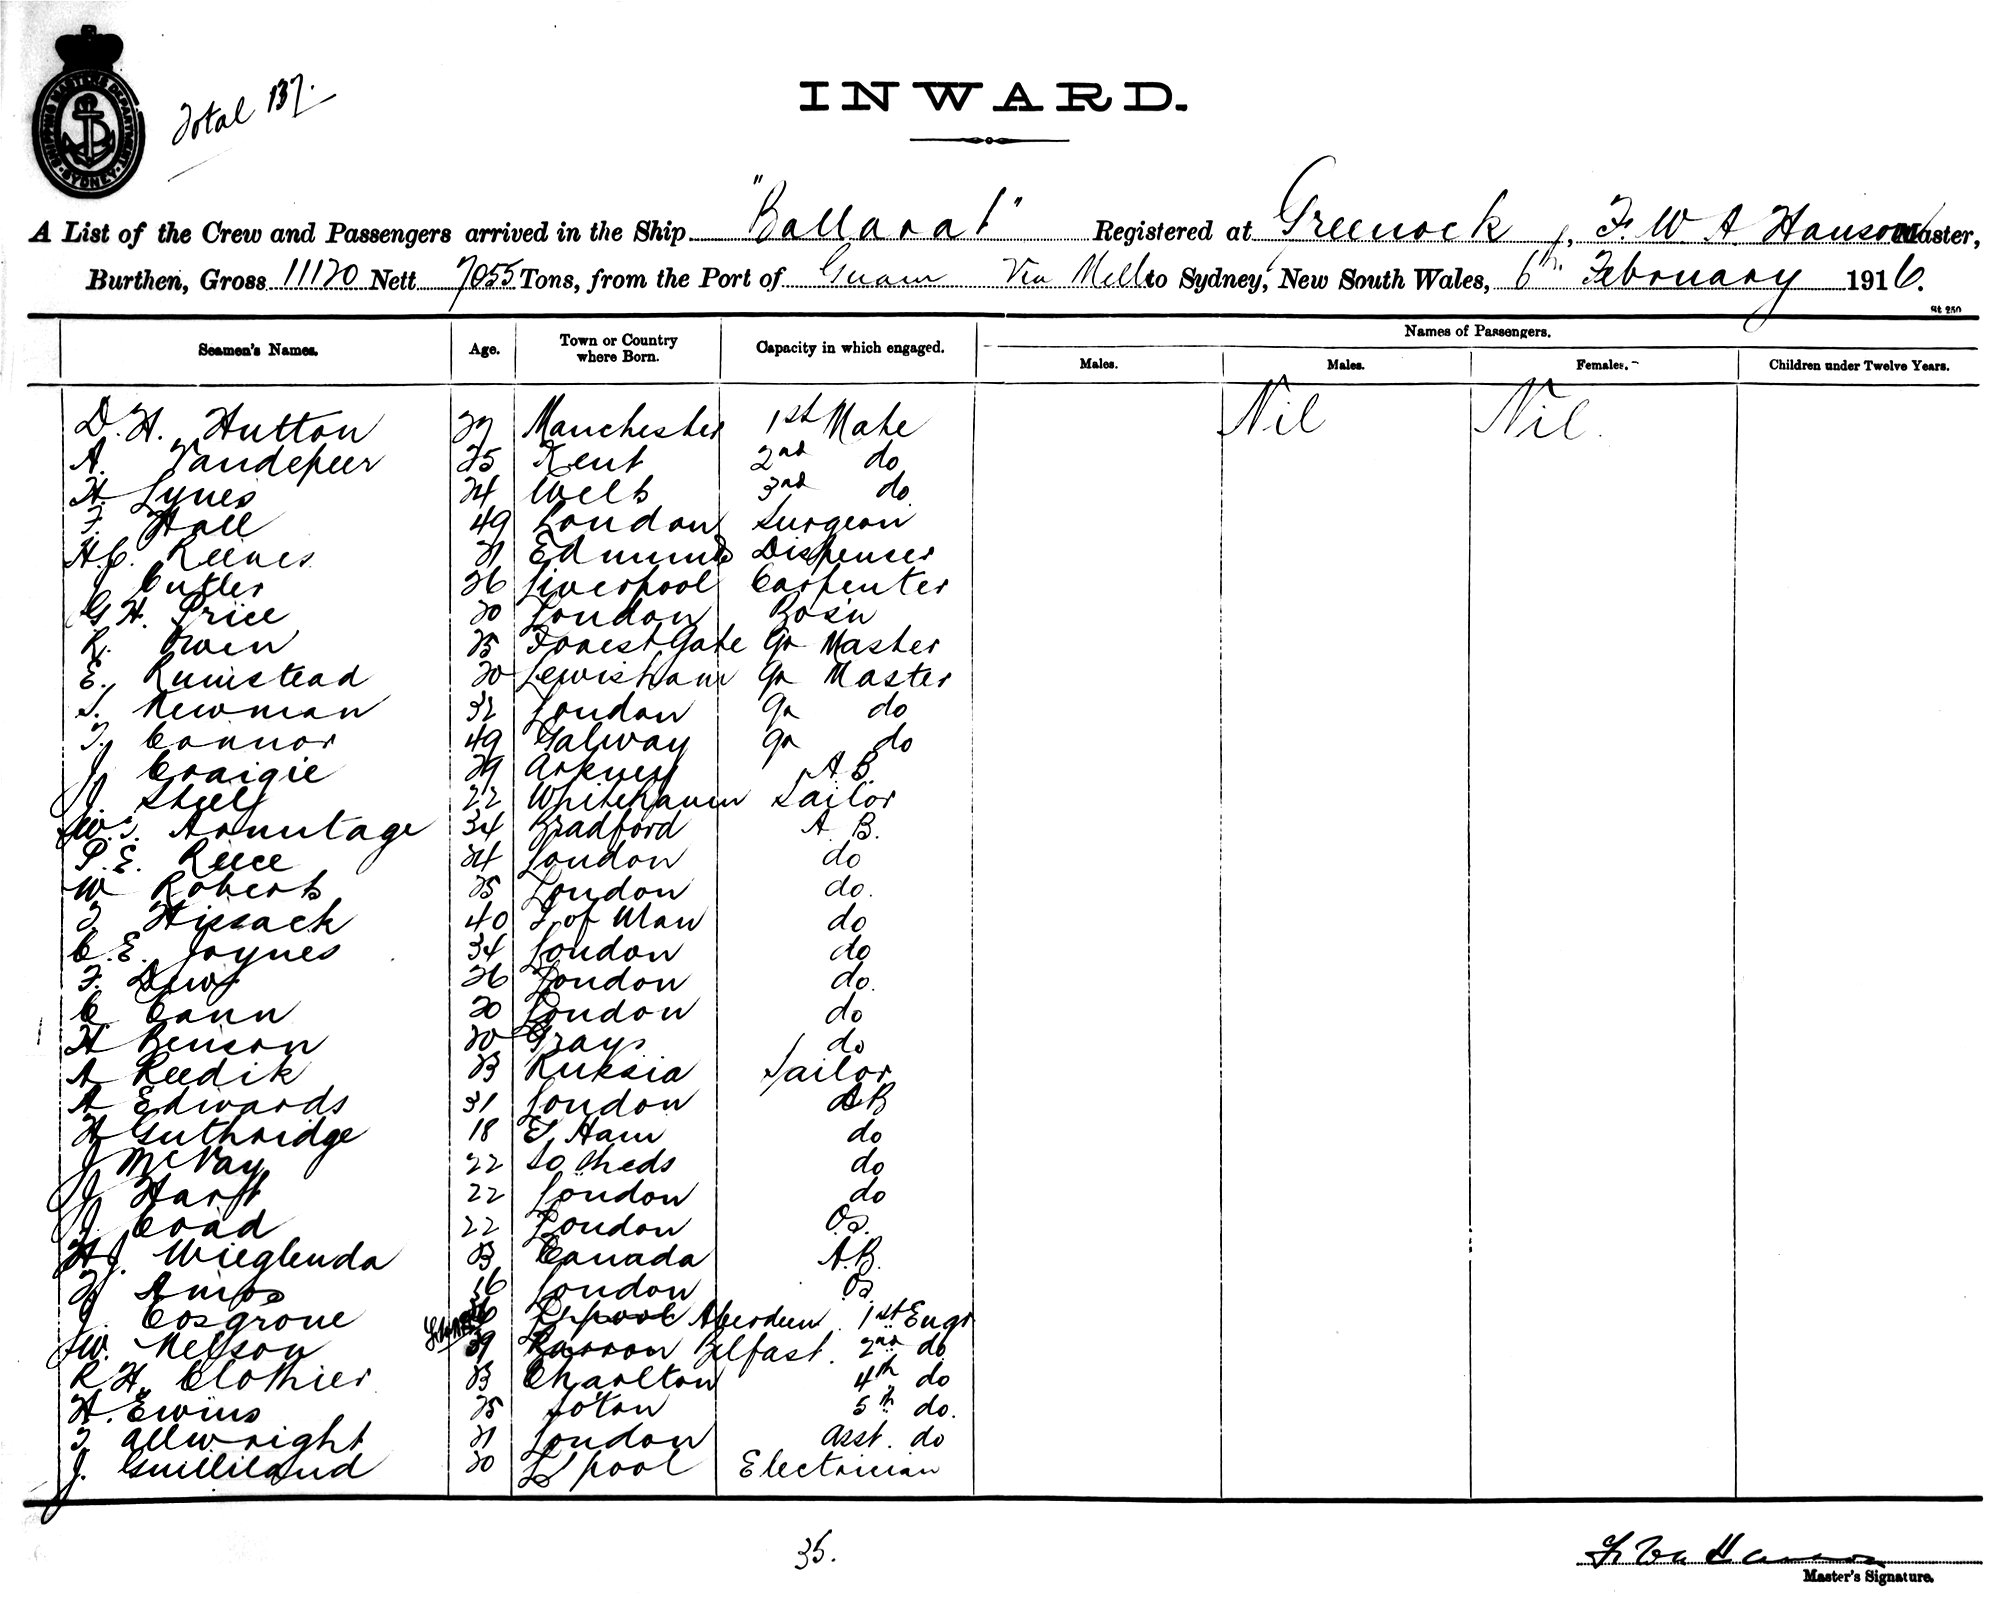 SHIPPING MASTER'S DEPARTMENT
SYDNEY
Total 137.
INWARD.
A List of the Crew and Passengers arrived in the Ship "Ballarat" Registered at Greenock, F. W. A Hanson Master,
Burthen, Gross 11120 Nett 7055 Tons, from the Port of Guam Via Mell to Sydney, New South Wales, 6th February 1916.
St 250
Seamen's Names. Age. Town or Country where Born. Capacity in which engaged. Names of Passengers.
Males. Males. Females. Children under Twelve Years.
Nil Nil.
D. H. Hutton 37 Manchester 1st Mate
A. Vandepeer 25 Kent 2nd do
H Lynes 24 Wells 3rd do
F. Hall 49 London Surgeon
H.C. Reeves 21 Edmunds Dispenser
J Cutler 26 Liverpool Carpenter
G H. Price 30 London Bosn
R. Owen 25 Forest Gate Qr Master
E. Rumstead 20 Lewisham Qr Master
T. Newman 32 London Qr do
T. Connor 49 Galway Qr do
J. Craigie 29 Orkney A.B.
J. Steel 22 Whitehaven Sailor
W. J. Armitage 34 Bradford A.B.
P.E. Reece 24 London do
W Roberts 25 London do.
T Hissack 40 I. of Man do
C.E. Joynes 34 London do
F. Dews 26 London do.
C Cann 20 London do
H Benson 20 Grays do
A Reedik 23 Russia Sailor
A Edwards 31 London AB
H Guthridge 18 E. Ham do
J McVay 22 So Sheds do
J Harft 22 London do
J. Coad 22 London O.S.
H J. Wieglenda 23 Canada A.B.
F Amos 16 London OS
J. Cosgrove 36 L'pool Aberdeen. 1st Engr
W. Nelson 39 Barrow Belfast. 2nd do
R H. Clothier 23 Charlton 4th do
H. Ewins 25 Soton 5th do.
T Allwright 21 London Asst. do
J. Guilliland 20 L'pool Electrician
35.
Master's Signature.